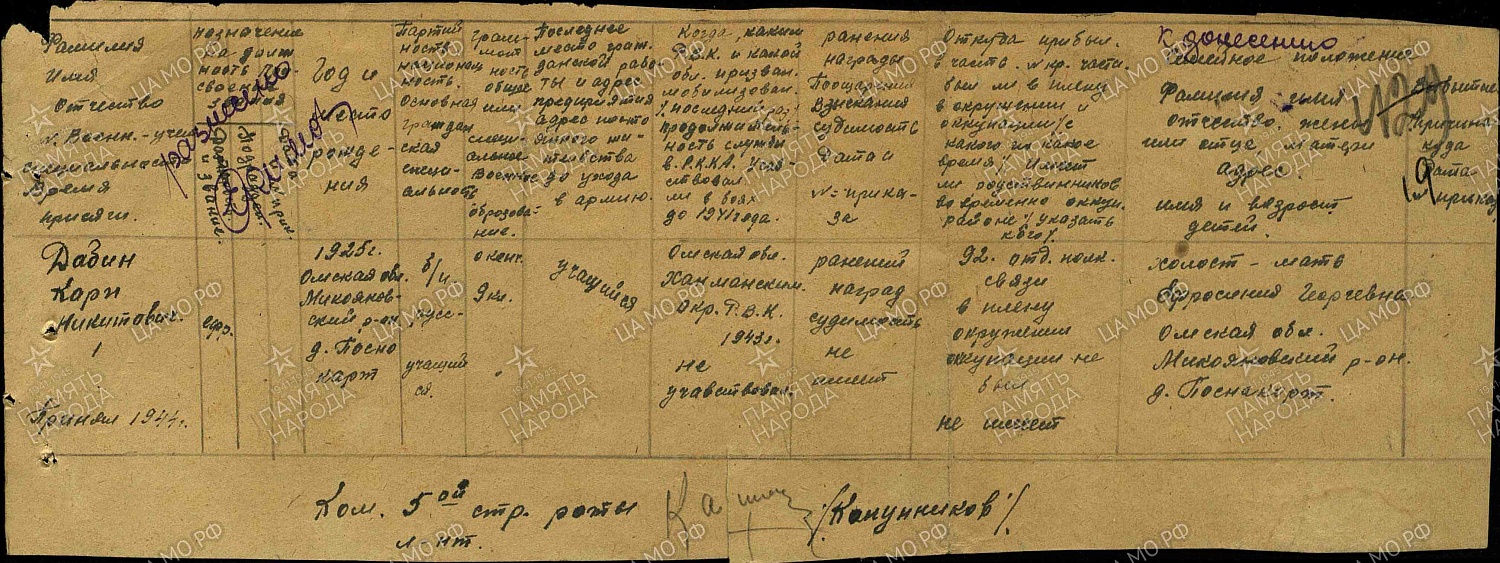 Фамилия
имя
отчество
№ Военн.-учет.
специальность
время
присяги.
назначение
на долж
ность
и звание.
Год и
место
рожде-
ния
Партий
ность
национал
ность.
Основная
граждан
ская
специ-
альность
грам-
мот
ность
общее
или
специ-
альное
Военное
образова-
ние.
Последнее
место граж.
данской рабо-
ты и адрес
предприятия
адрес посто
янного жи-
тельства
до ухода
в армию.
Когда, каким
Р.В.К. и какой
обл. призван.
мобилизован.
/последний раз/
продолжитель-
ность службы
в Р.К.К.А. Учав-
ствовал
ли в боях
до 1941 года.
ранения
награды
Поощрения
Взыскания
судимость
Дата и
№ прика-
за
Откуда прибыл.
в часть. № кр. части.
был ли в плену
в окружении и
оккупации /с
какого по какое
время/ Имеет
ли родственников
во временно оккуп.
районе / указать
кого/.
К донесению
Семейное положение
Фамилия имя
отчество жены
или отца матери
адрес.
имя и возраст
детей.
Убытие
причина
куда
Дата
приказ
Дабин
Карп
Никитович.
1
Принял 1944г.
ефр.
1925г.
Омская обл.
Микоянов-
ский р-он
д. Посно
карт
б/п
русс-
учащий
ся.
оконч.
9 кл.
учащийся
Омская обл.
Ханманским.
Окр. Р.В.К.
1943г.
не
учавствовал.
ранений
наград
судимость
не
имеет
92. отд. полк.
связи
в плену
окружении
оккупации не
был
не имеет
холост – мать
Ефросиния Георгевна
Омская обл.
Микояновский р-он.
д. Поснакорт.
Ком. 5ой стр. роты
л-нт.
/Канунников/.
ЦА МО РФ
ПАМЯТЬ
НАРОДА